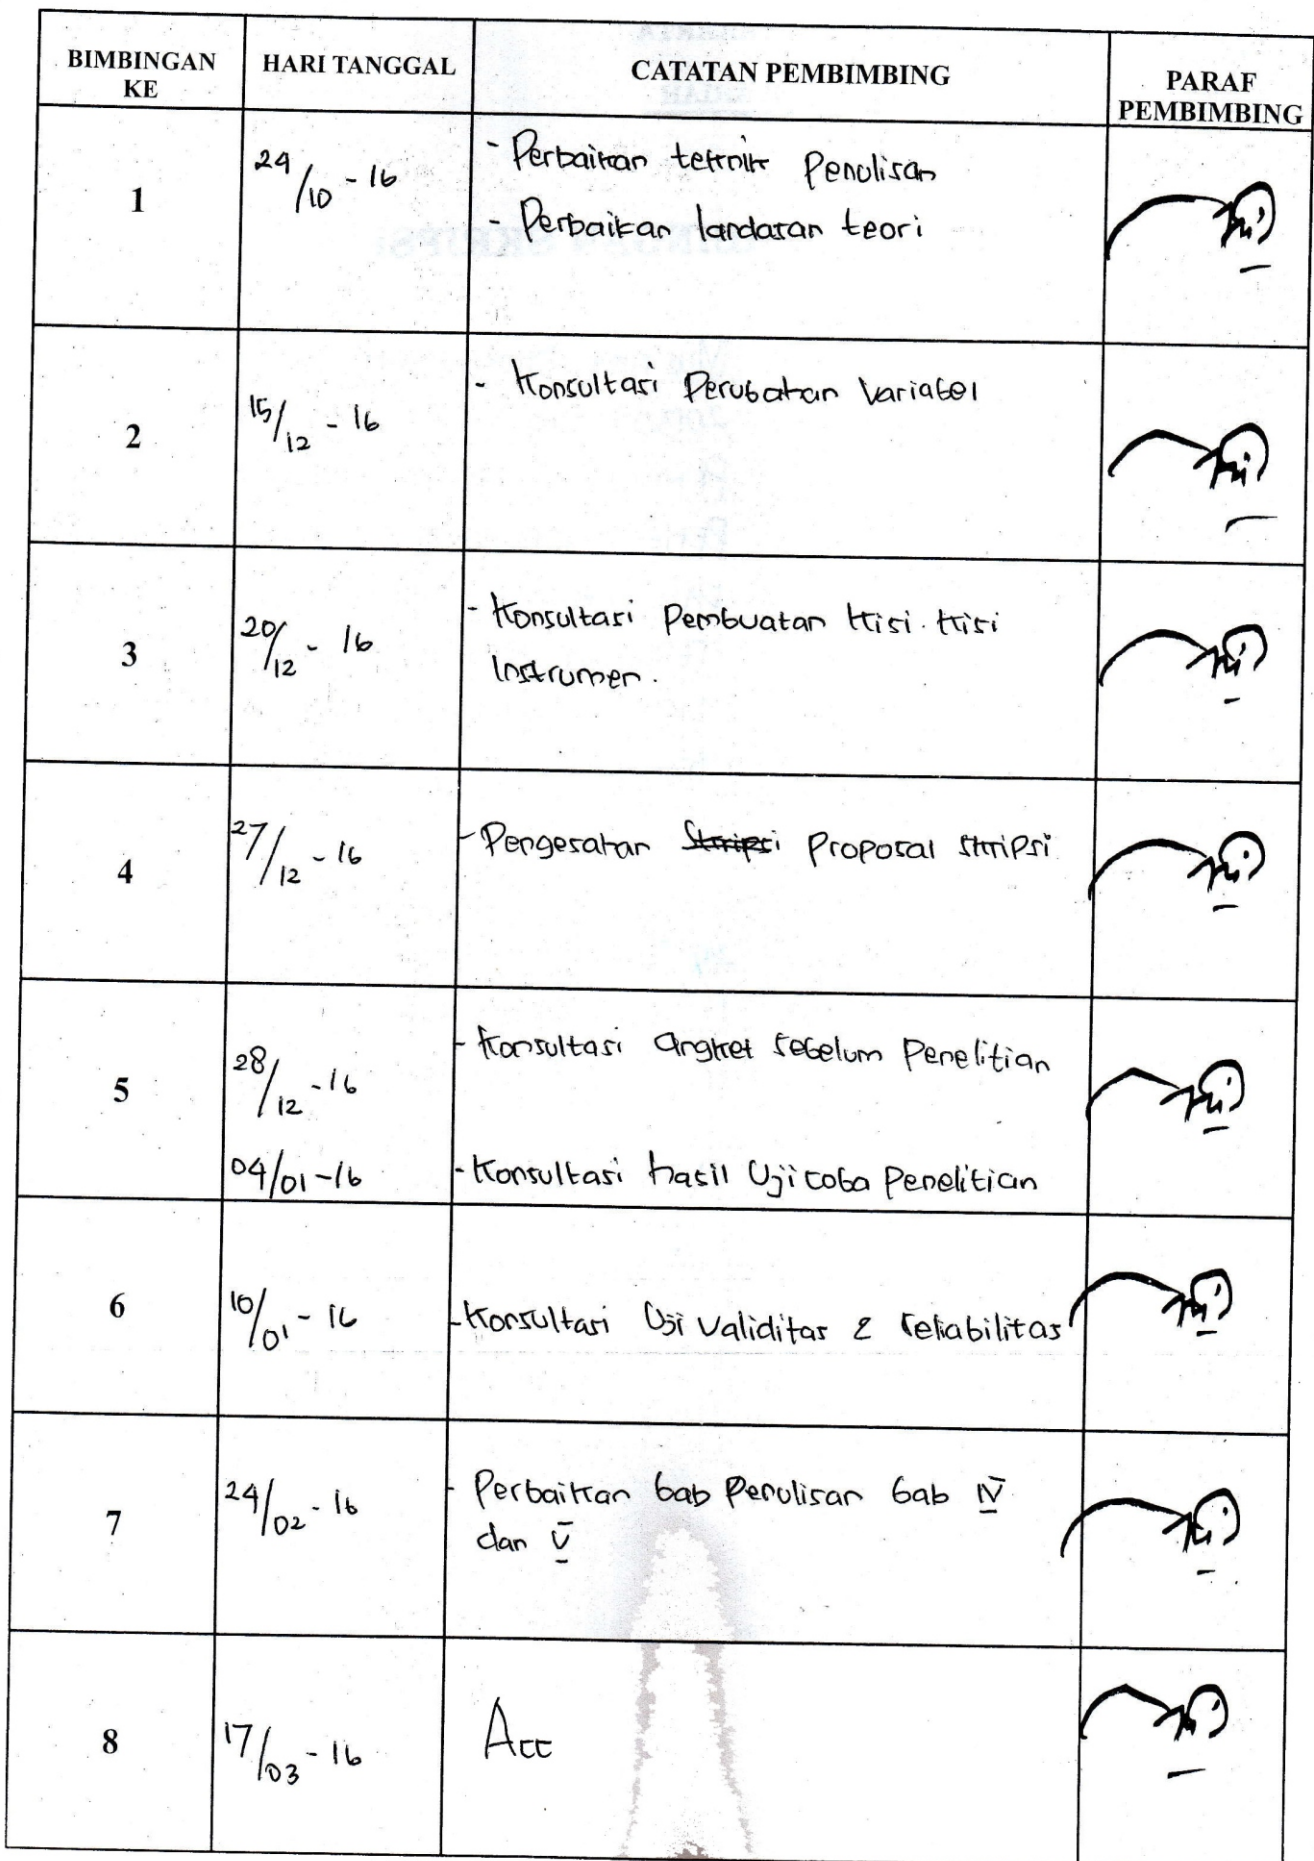 BIMBINGAN KE | HARI TANGGAL | CATATAN PEMBIMBING | PARAF PEMBIMBING
1 | 24/10 - 16 | - Perbaikan teknik Penulisan
- Perbaikan landasan teori
2 | 15/12 - 16 | - Konsultasi Perubahan Variabel
3 | 20/12 - 16 | - Konsultasi Pembuatan kisi-kisi
Instrumen.
4 | 27/12 - 16 | - Pengesahan Skripsi Proposal Skripsi
5 | 28/12 - 16 | - Konsultasi angket sebelum Penelitian
04/01 - 16 | - Konsultasi hasil Uji coba Penelitian
6 | 10/01 - 16 | - Konsultasi Uji Validitas & reliabilitas
7 | 24/02 - 16 | - Perbaikan bab Penulisan bab IV
dan V
8 | 17/03 - 16 | Acc